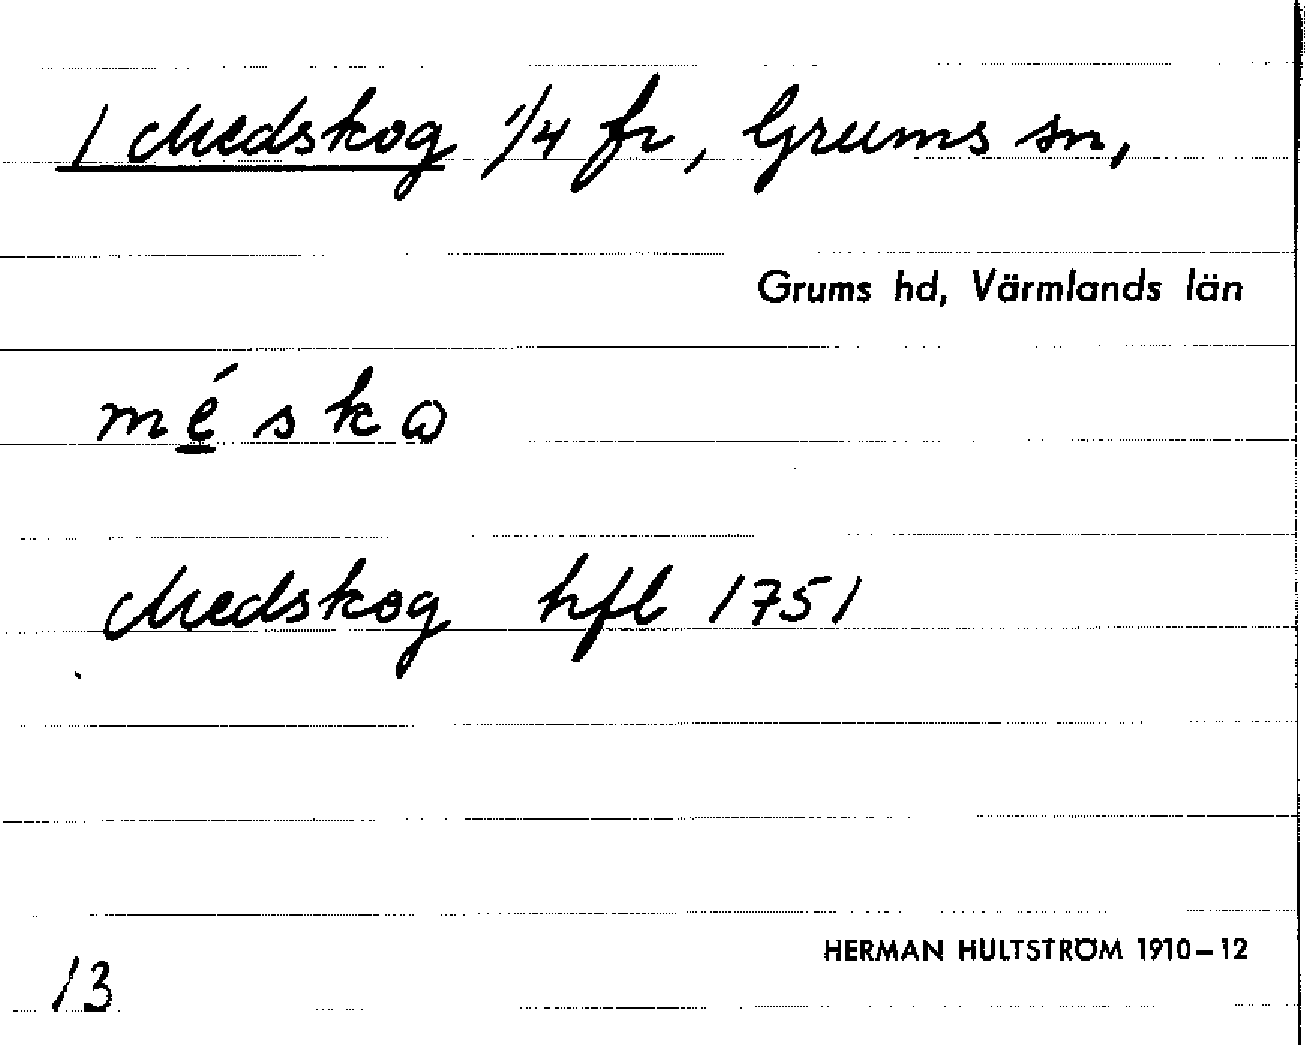 1 Medskog 1/4 fr, Grums sn,
Grums hd, Värmlands län
méskω
Medskog hfl 1751
HERMAN HULTSTRÖM 1910–12
13